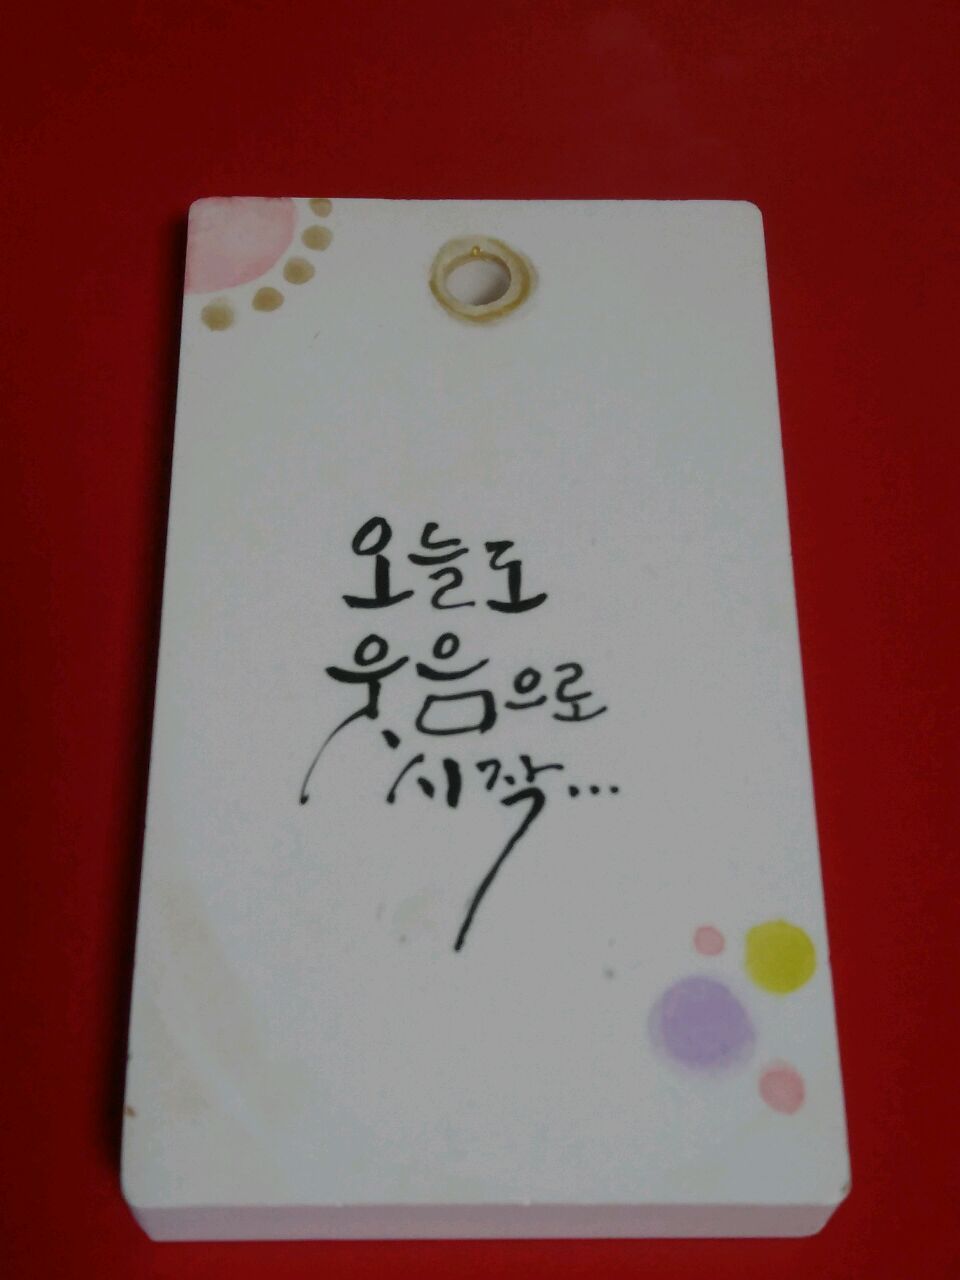 오늘도
웃음으로
시작...